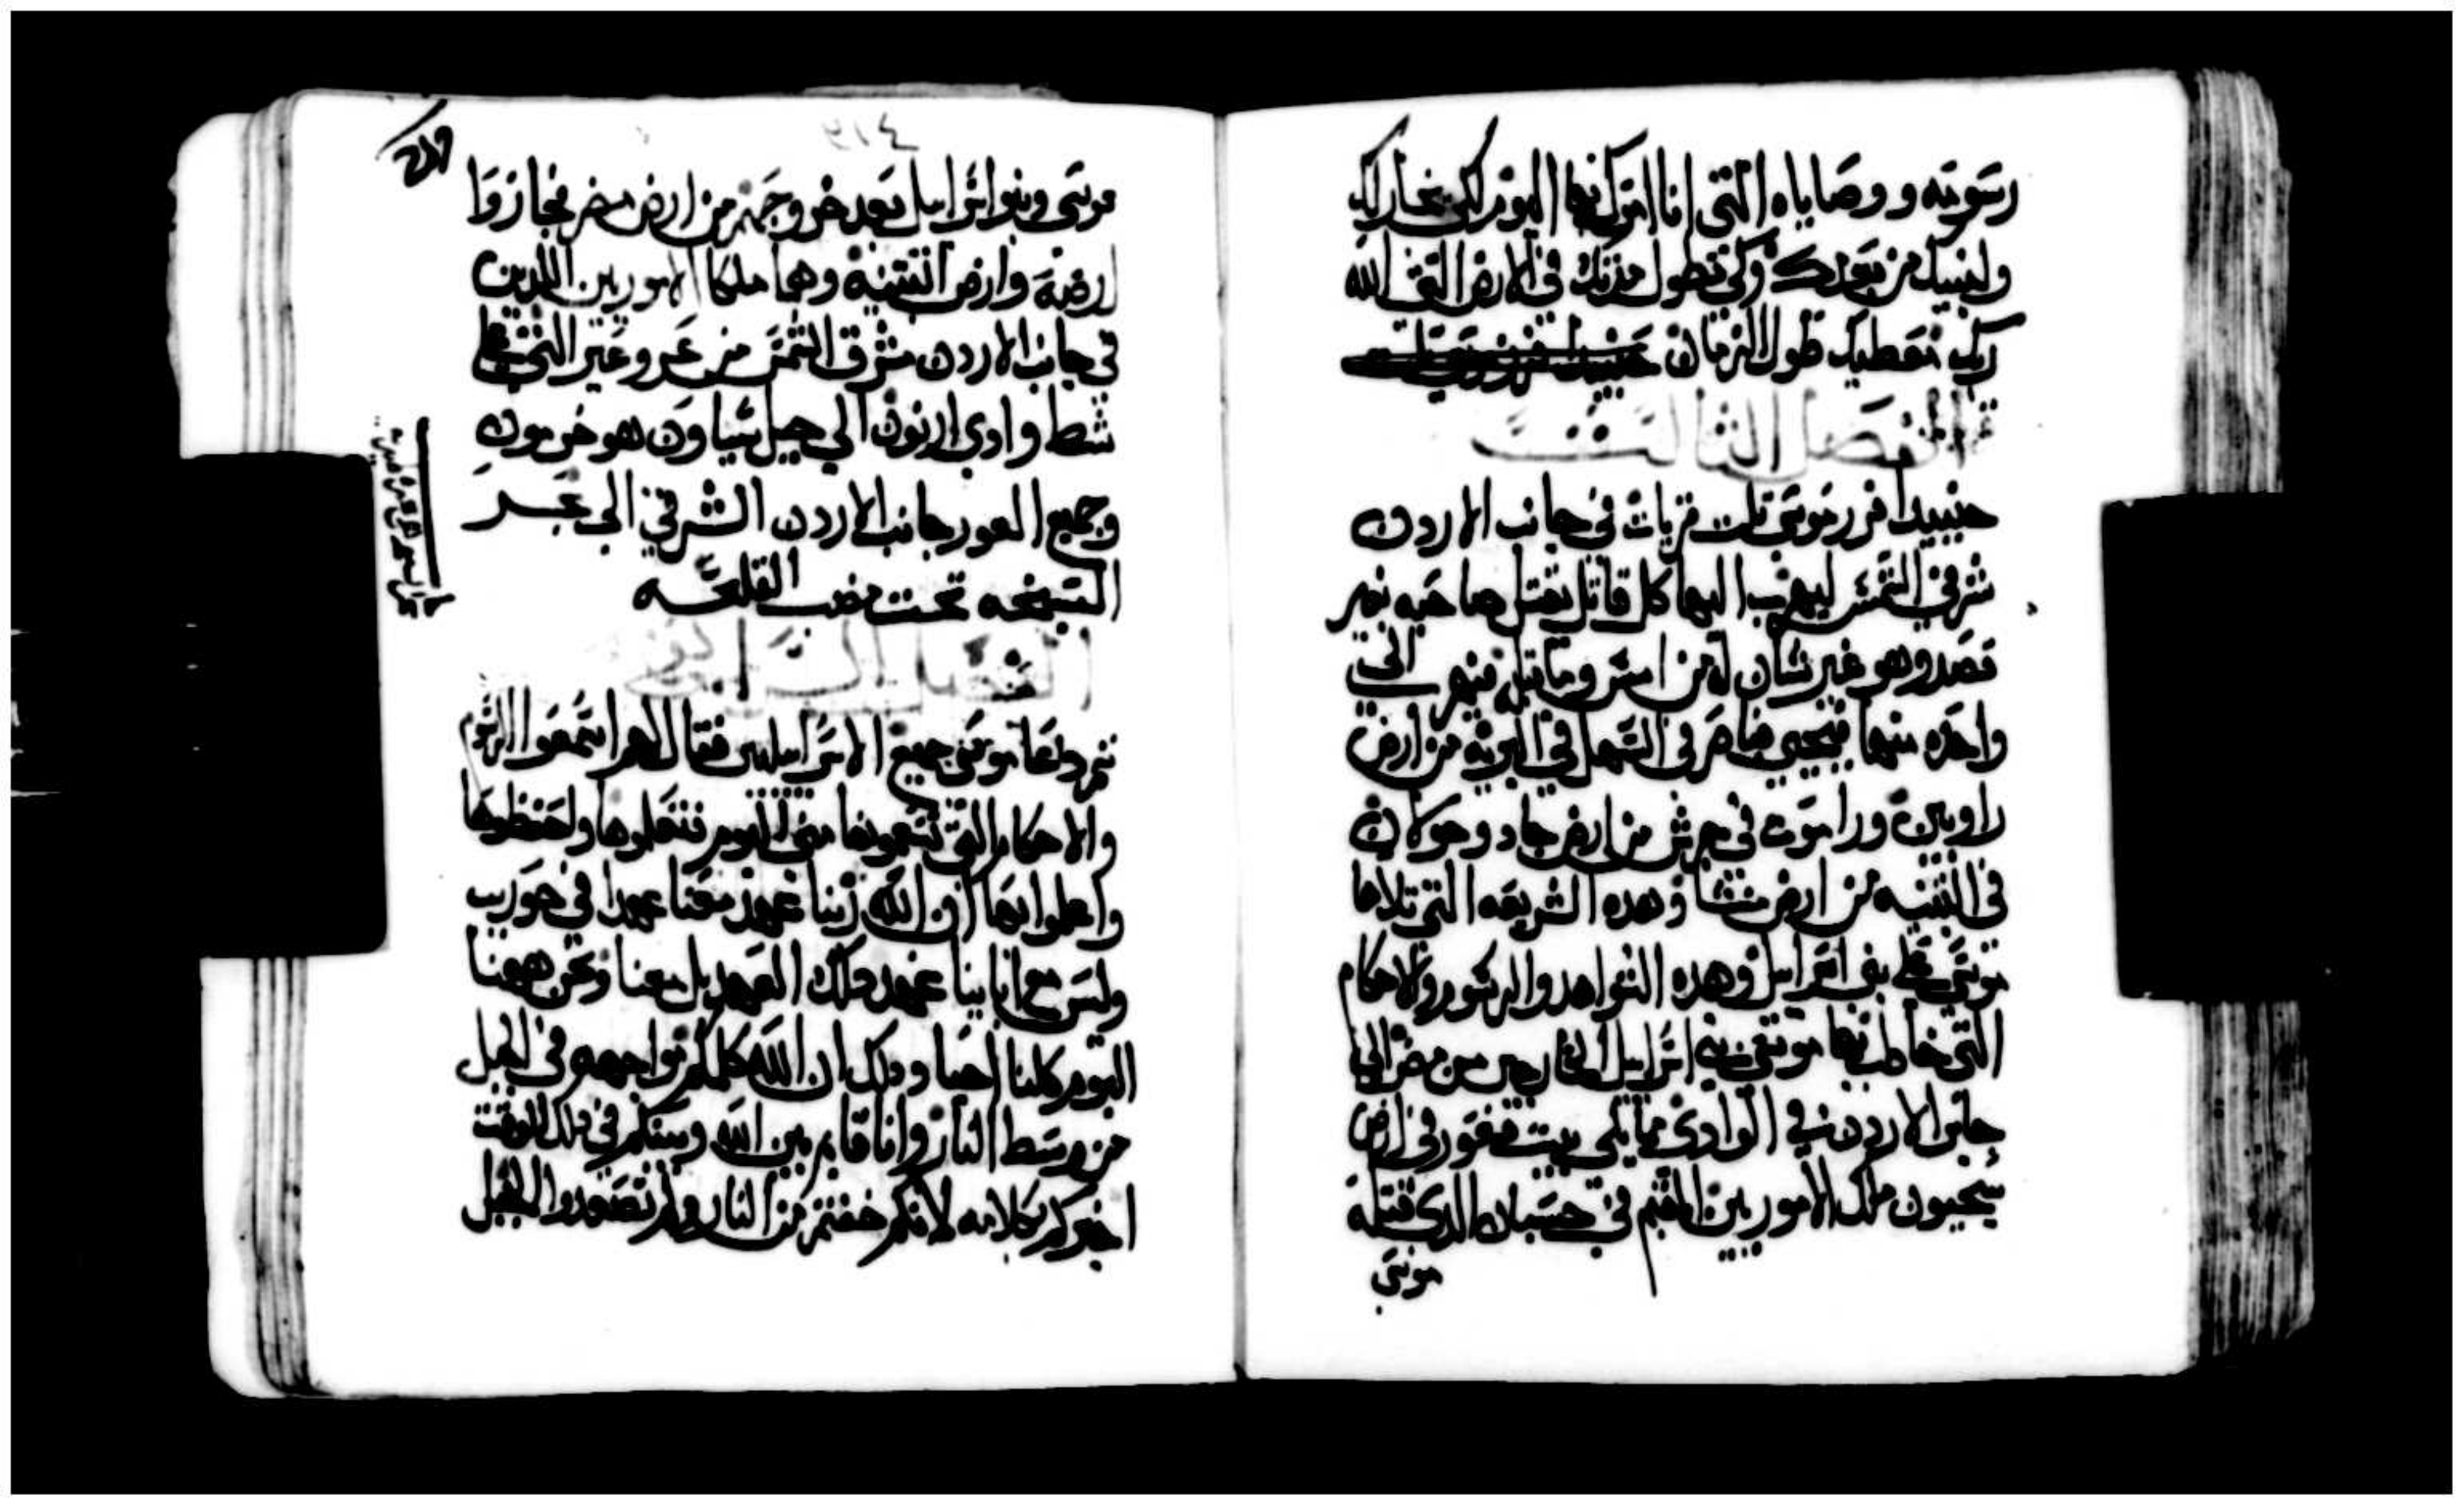 رسومه ووصاياه التى انا امرك بها اليوم لكى يخار لك
ولبنيك من بعدك وكى تطول مدتك في الارض التى الله
ربك معطيك طول الزمان
الفصل الثالث
حينيدا فرز موسى تلت قريات في جانب الاردن
شرقي الشمس ليهرب اليها كل قاتل يقتل صاحبه بغير
قصد وهو غير شان له من امس وما قبله فيهرب الى
واحده منها فيحيى باصر في السهل في البريه من ارض
راوبين وراموت في جرش من ارض جاد وجولان
في البتنيه من ارض منشا وهده الشريعه التى تلاها
موسى على بنى اسراييل وهده الشواهد والرسوم والاحكام
التى خاطب بها موسى بنى اسراييل الخارجين من مصر الى
جانب الاردن في الوادى مما يلى بيت فغور في ارض
سيحيون ملك الاموريين المقيم في حسبان الدى قتله
موسى
٢١٤
موسى وبنوا اسراييل بعد خروجهم من ارض مصر فجازوا
ارضه وارض البتنيه وهما ملكا الاموريين اللدين
في جانب الاردن مشرق الشمس من عروعير التى على
شط وادي ارنون الي جبل سياون هو خرمون
وجميع الغور جانب الاردن الشرقي الى بحر
تحت مصب القلعه
الفصل الرابع
تم دعا موسى جميع الاسراييليين فقال لهم اسمعوا الرسوم
والاحكام التى تسمعونها منى اليوم فتتعلموها ولحفظوها
واعملوا بها ان الله ربنا عهد معنا عهدا في حوريب
وليس مع اباينا عهد دلك العهد بل معنا ونحن ههنا
اليوم كلنا احيا ودلك ان الله كلمكم مواجهه في الجبل
من وسط النار وانا قايم بين الله وبينكم في دلك الوقت
اخبركم بكلامه لانكم خفتم من النار ولم تصعدوا الجبل